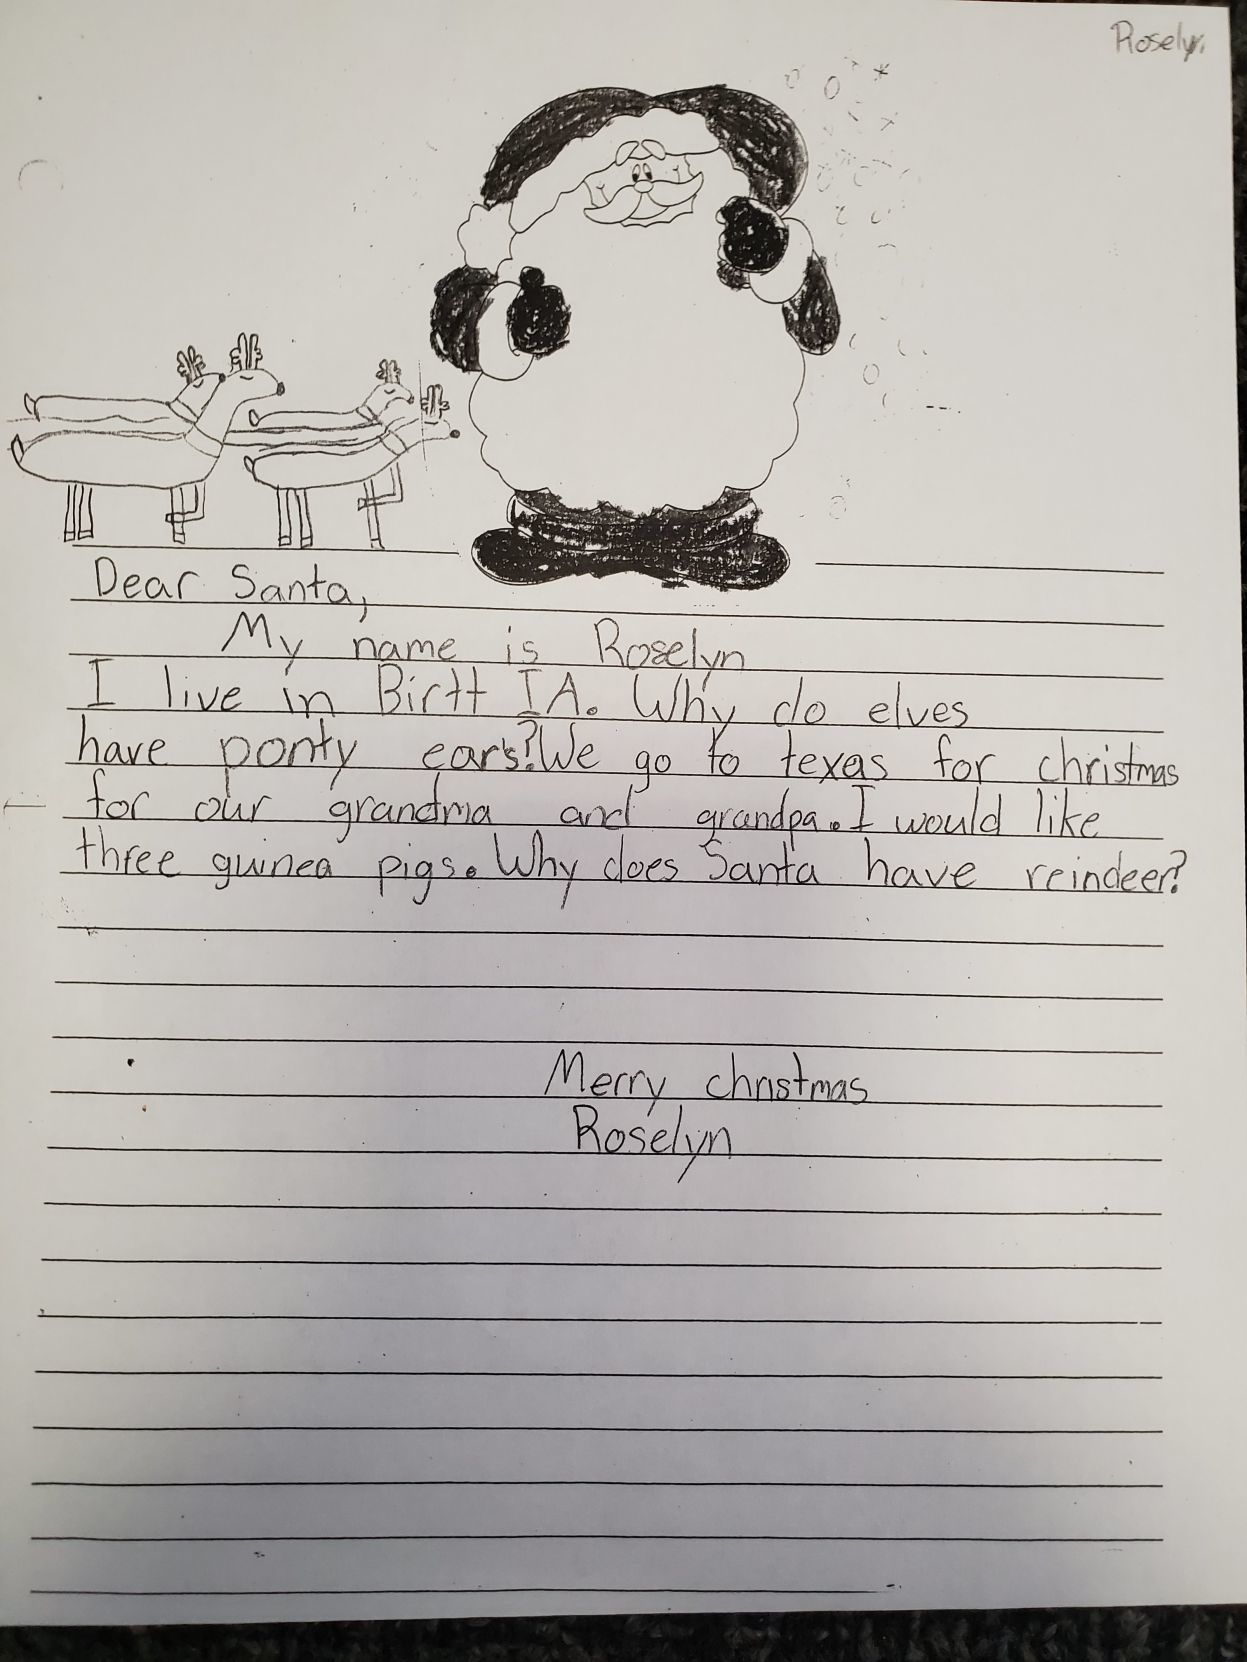 Roselyn
Dear Santa,
My name is Roselyn
I live in Birtt IA. Why do elves
have ponty ears? We go to texas for christmas
for our grandma and grandpa. I would like
three guinea pigs. Why does Santa have reindeer?
Merry christmas
Roselyn